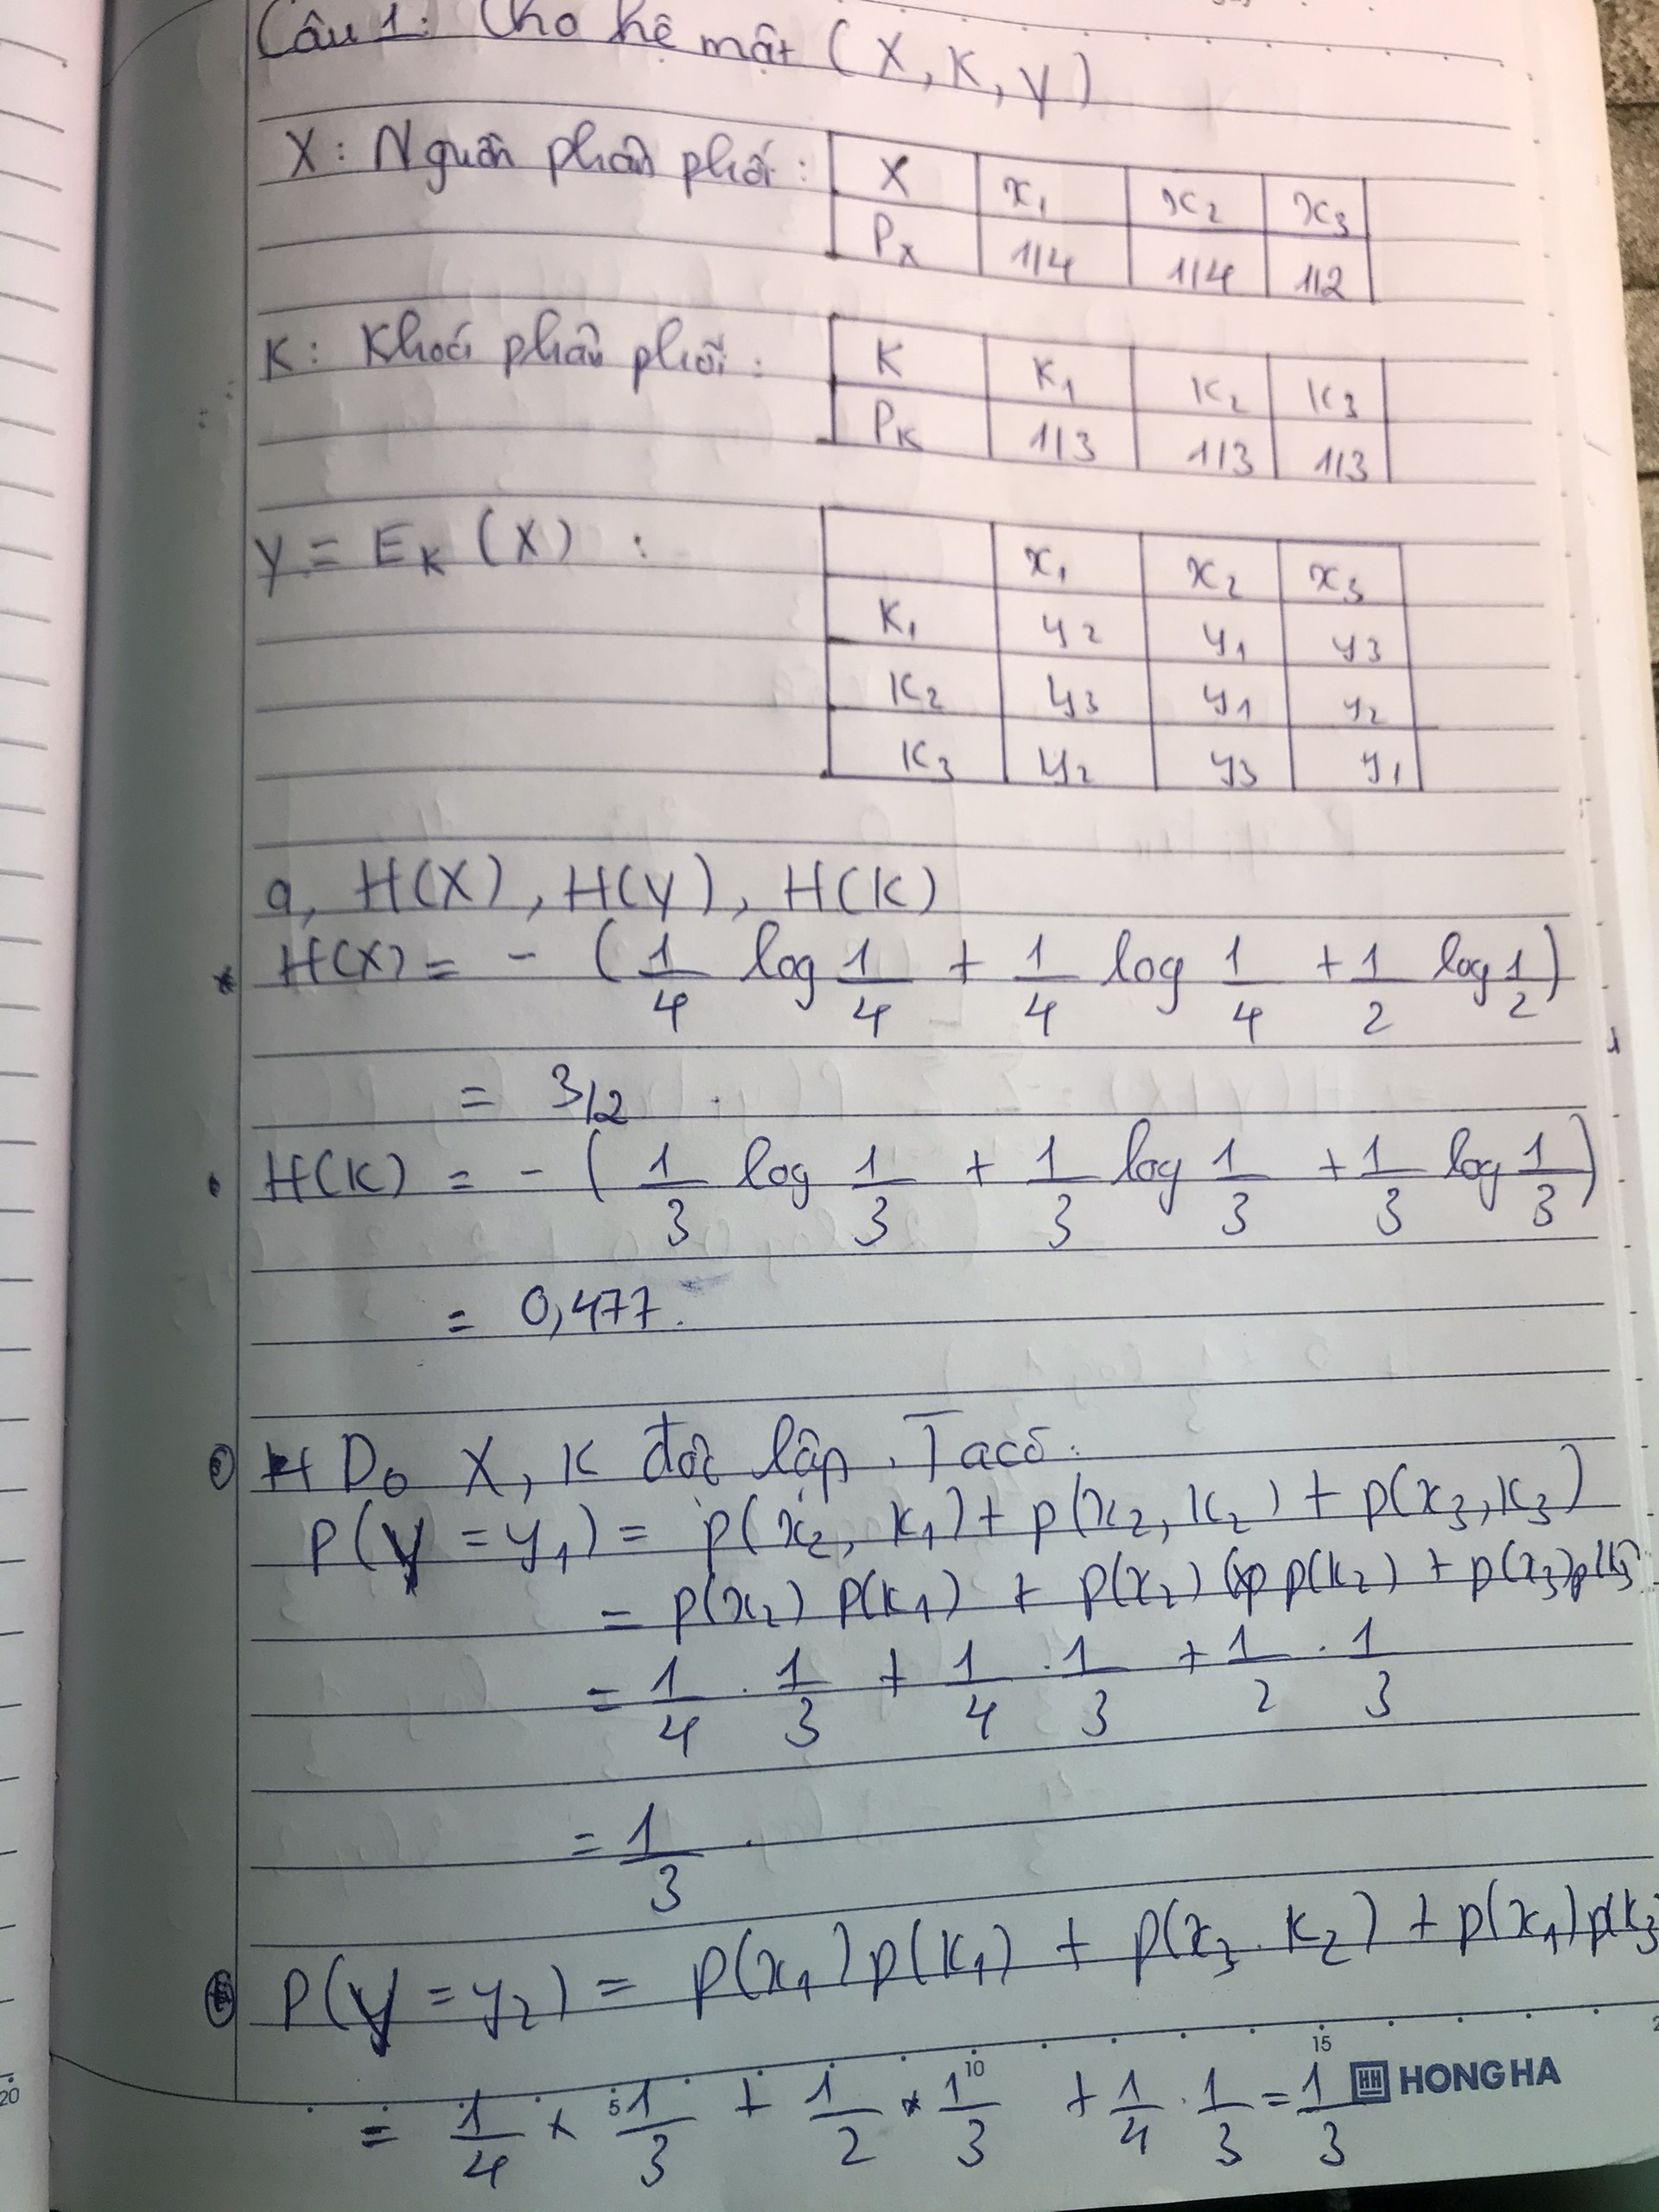 Câu 1: Cho hệ mật (X, K, Y)
X: Nguồn phân phối:
X x₁ x₂ x₃
Pₓ 1/4 1/4 1/2
K: Khoá phân phối:
K K₁ K₂ K₃
Pₖ 1/3 1/3 1/3
Y = Eₖ (X) :
x₁ x₂ x₃
K₁ y₂ y₁ y₃
K₂ y₃ y₁ y₂
K₃ y₂ y₃ y₁
a, H(X), H(Y), H(K)
* H(X) = - (1/4 log 1/4 + 1/4 log 1/4 + 1/2 log 1/2)
= 3/2 .
• H(K) = - (1/3 log 1/3 + 1/3 log 1/3 + 1/3 log 1/3)
= 0,477.
Do X, K độc lập. Ta có:
P(Y = y₁) = p(x₂, K₁) + p(x₂, K₂) + p(x₃, K₃)
= p(x₂) p(K₁) + p(x₂) p(K₂) + p(x₃) p(K₃)
= 1/4 . 1/3 + 1/4 . 1/3 + 1/2 . 1/3
= 1/3 .
P(Y = y₂) = p(x₁) p(K₁) + p(x₃ . K₂) + p(x₁) p(K₃
= 1/4 × 1/3 + 1/2 × 1/3 + 1/4 . 1/3 = 1/3
5 10 15
20
HH HONG HA